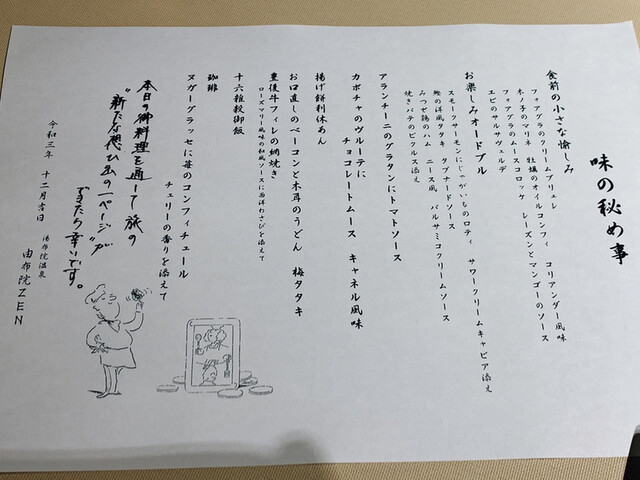 味の秘め事
食前の小さな愉しみ
フォアグラのクリームブリュレ
木ノ子のマリネ 牡蠣のオイルコンフィ コリアンダー風味
フォアグラのムースコロッケ レーズンとマンゴーのソース
エビのサルサヴェルデ
お楽しみオードブル
スモークサーモンにじゃがいものロティ サワークリームキャビア添え
鰹の洋風タタキ タプナードソース
みつせ鶏のハム ニース風 バルサミコクリームソース
焼きパテのピクルス添え
アランチーニのグラタンにトマトソース
カボチャのヴルーテに
チョコレートムース キャネル風味
揚げ餅利休あん
お口直しのベーコンと木耳のうどん 梅タタキ
豊後牛フィレの網焼き
ローズマリー風味の和風ソースに西洋わさびを添えて
十六雑穀御飯
珈琲
ヌガーグラッセに苺のコンフィチュール
チェリーの香りを添えて
本日の御料理を通して旅の
"新たな想ひ出の一ページ"が
できたら幸いです。
令和三年 十二月吉日
湯布院温泉
由布院ZEN